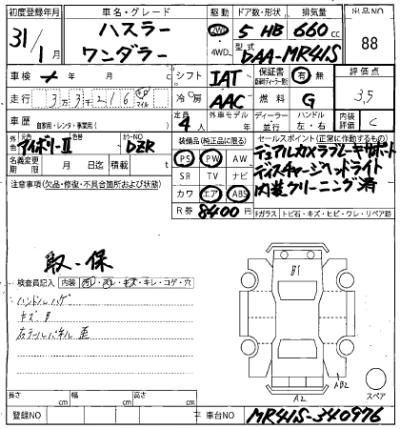 初度登録年月 車名・グレード 駆動 ドア数・形状 排気量 出品NO
31/1月 ハスラー ワンダラー 2WD 4WD 5 HB 660cc 88
型式 DAA-MR41S
車検 年 月 シフト IAT 保証書 有 無 評価点
走行 3万3千216 km マイル 冷房 AAC 燃料 G 3.5
車歴 自家用・レンタ・事業用( ) 定員 4人 外車モデル年 年 ディーラー 並行 ハンドル 左・右 内装評価 C
外色 アイボリーII カラーNO DZR 装備品(純正品に限る) セールスポイント(正常に作動するもの)
名義変更期限 月 日迄 積載 t PS PW AW デュアルカメラブレーキサポート
注意事項(欠品・修復・不具合箇所および状態) SR TV ナビ ディスチャージヘッドライト
カワ エア ABS 内装クリーニング済
R券 8400円 Fガラス トビ石・キズ・ヒビ・ワレ・リペア跡
取・保
検査員記入 内装 ヨゴレ・スレ・キズ・キレ・コゲ・穴
ハンドルハゲ
B1
AB2
A2
スペア
長さ cm 幅 cm 高さ cm
登録NO 車台NO MR41S-340976